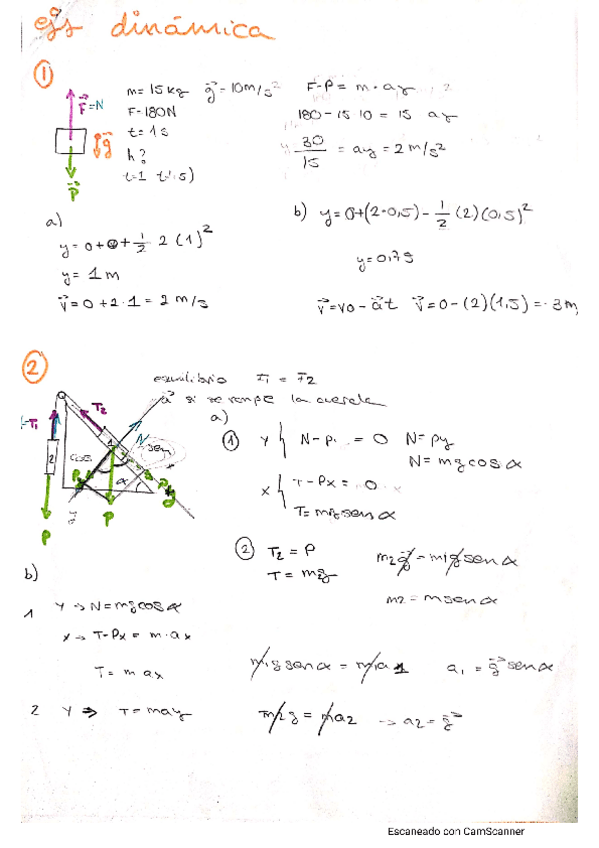 ejs dinámica
①
F=N
g
P
m= 15 kg g=10m/s²
F=180N
t= 1 s
h?
F-P = m · ay
180 - 15 10 = 15 ay
30/15 = ay = 2 m/s²
a)
y= 0+0+ 1/2 2 (1)²
y= 1 m
V=0+2·1= 2 m/s
b) y= 0+(2·0,5) - 1/2 (2)(0,5)²
y=0,75
V=vo - at V=0-(2)(1,5)=-3m
②
equilibrio
a si se rompe la cuerda
T1
T2
N
sen
cos
1
2
α
P
P
g
a)
① Y { N-P = 0 N= Py
N= mg cos α
X { T-Px = 0
T= mg sen α
② T2 = P m2g = m1g sen α
T= mg
m2 = m sen α
b)
1 Y → N= mg cos α
X → T-Px = m·ax
T= m ax
m1g sen α = m1a1 a1 = g sen α
2 Y ⇒ T= may
m2g = ma2 → a2= g
Escaneado con CamScanner